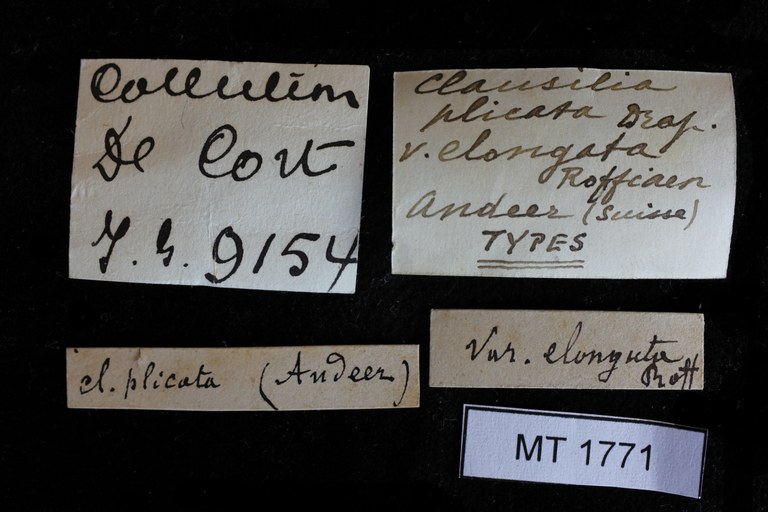 Collection
De Cort
I.G. 9154
Clausilia
plicata Drap.
v. elongata
Roffiaen
Andeer (Suisse)
TYPES
cl. plicata (Andeer)
Var. elongata
Roff
MT 1771